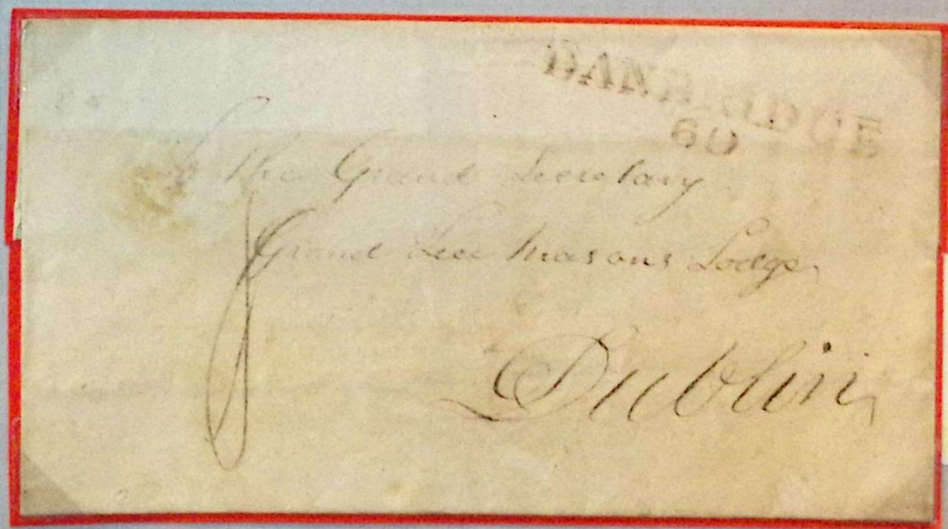 BANBRIDGE
60
To The Grand Secretary
Grand Free Masons Lodge
Dublin